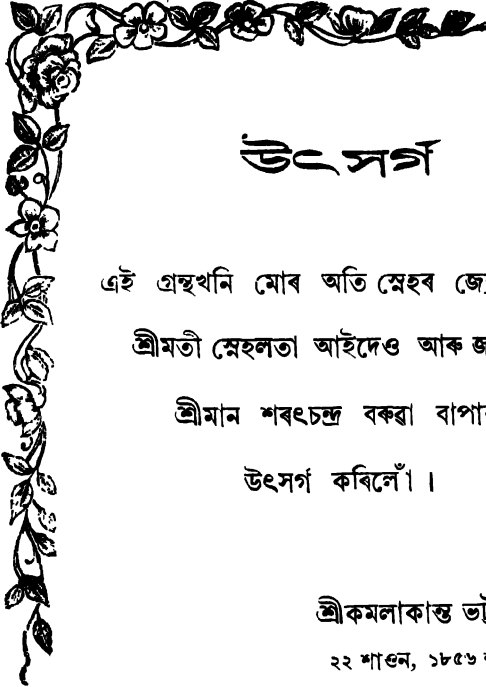 উৎসৰ্গ
এই গ্ৰন্থখনি মোৰ অতি স্নেহৰ
শ্ৰীমতী স্নেহলতা আইদেও আৰু
শ্ৰীমান শৰৎচন্দ্ৰ বৰুৱা
উৎসৰ্গ কৰিলোঁ।
শ্ৰীকমলাকান্ত
২২ শাওন, ১৮৫৬